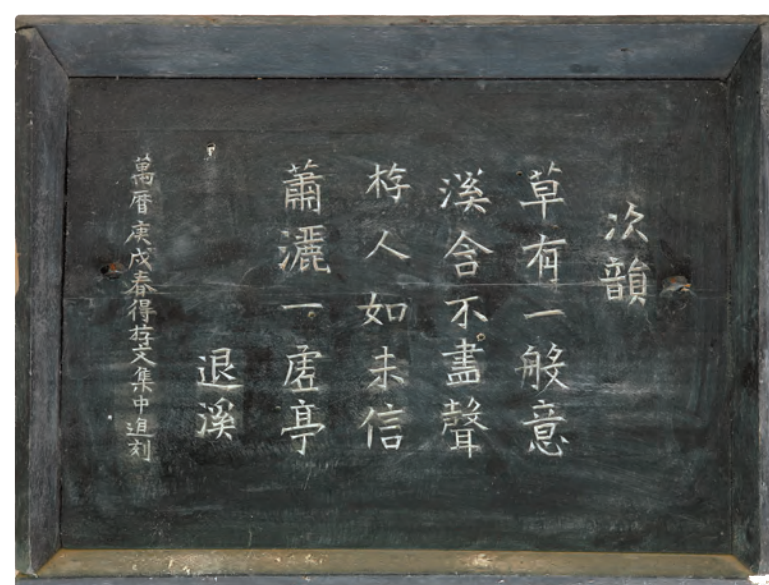 次韻
草有一般意
溪含不盡聲
斿人如未信
蕭灑一虗亭
退溪
萬暦庚戌春得扵文集中追刻